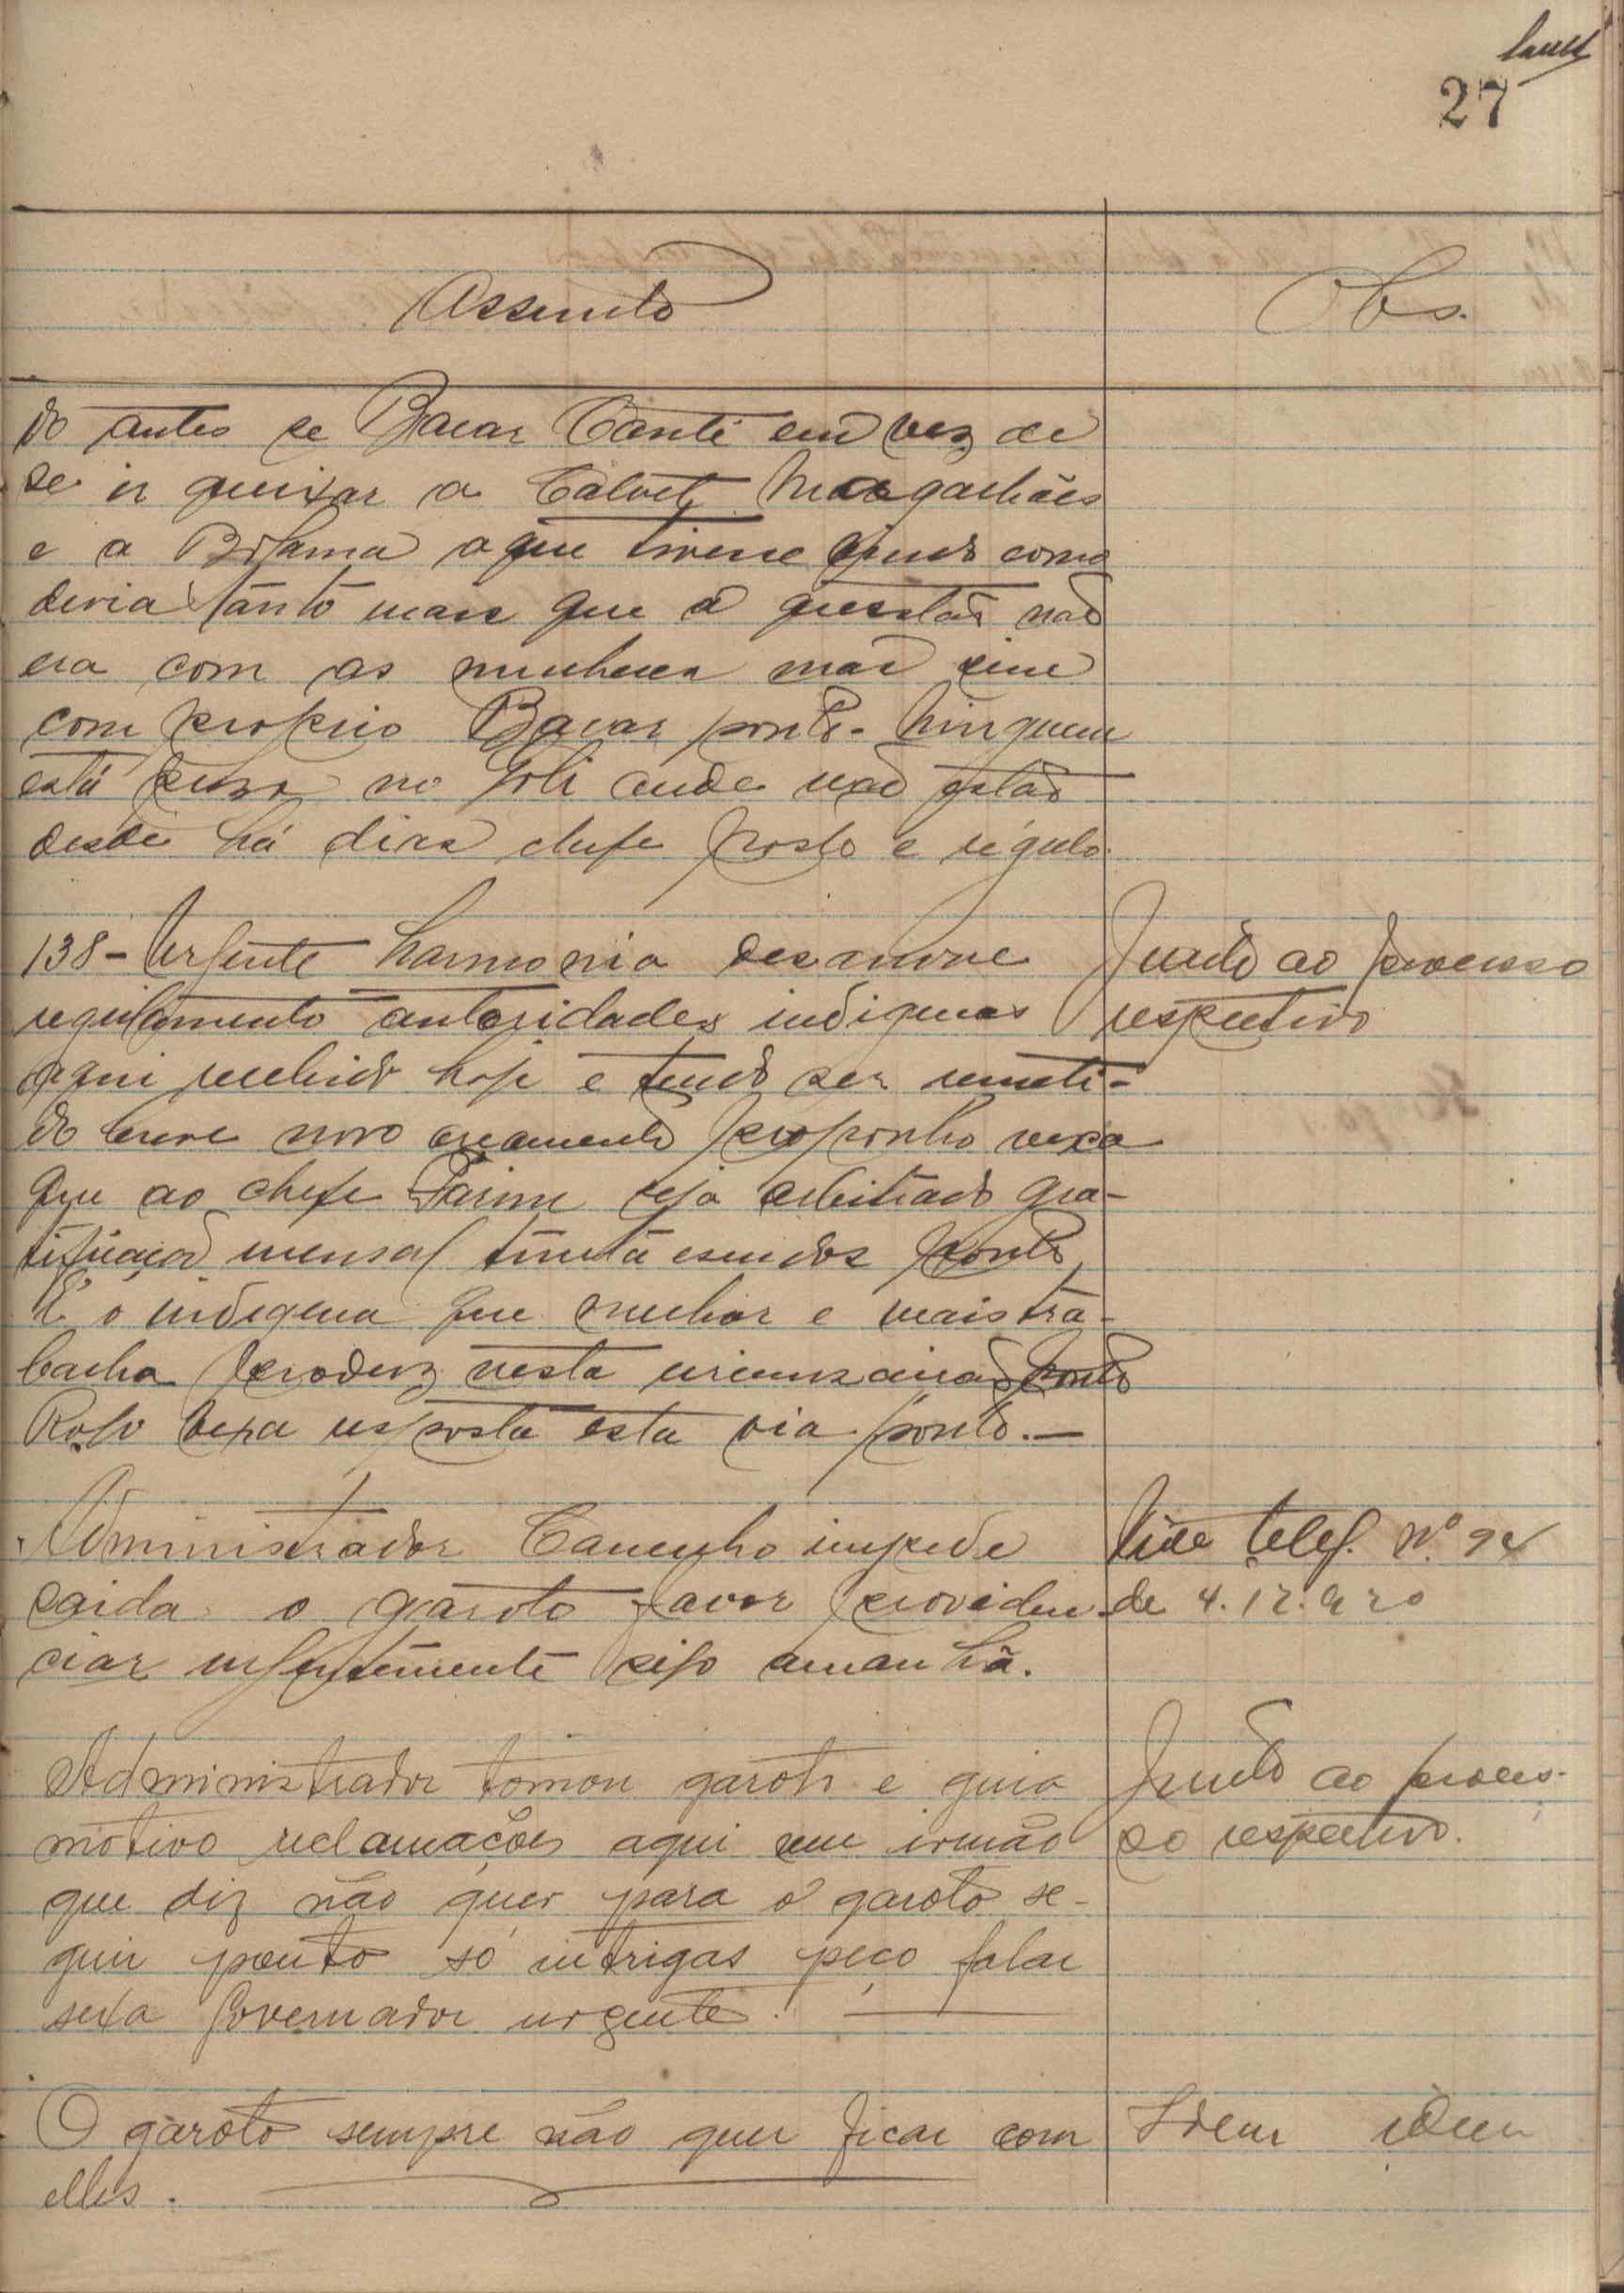 27
Assunto
Obs.
do antes se Bacar Canté em vez de
se ir queixar a Calvet Magalhães
e a Bolama aqui tivesse vindo como
devia tanto mais que a questão não
era com as mulheres mas sim
com proprio Bacar ponto. Ninguem
está preso no Joli onde não estão
desde há dias chefe posto e régulo.
138 - Urgente harmonia desanove
regulamento autoridades indigenas
aqui recebido hoje e tendo ser remeti-
do breve novo orçamento proponho vexa
que ao chefe Farim seja arbitrado gra-
tificação mensal trinta escudos ponto
É o indigena que melhor e mais tra-
balha produz nesta circunscrição ponto
Rogo vexa resposta esta via ponto. —
Junto ao processo
respectivo
Administrador Canchungo impede
saida o garoto favor providen-
ciar urgentemente sigo amanhã.
Vide teleg. Nº 94
de 4.12.920
Administrador tomou garoto e guia
motivo reclamações aqui um irmão
que diz não quer para o garoto se-
guir ponto só intrigas peço falar
sexa Governador urgente.
Junto ao proces-
so respectivo.
O garoto sempre não quer ficar com
elles.
Idem idem